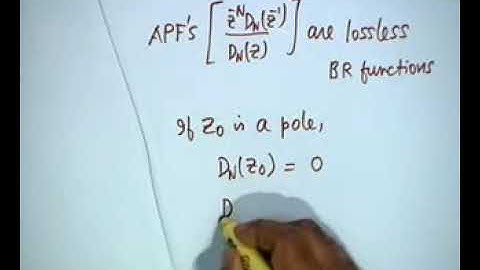 APF's [z̄ᴺ Dɴ(z̄¹) / Dɴ(z)] are lossless
BR functions
If z₀ is a pole,
Dɴ(z₀) = 0
D